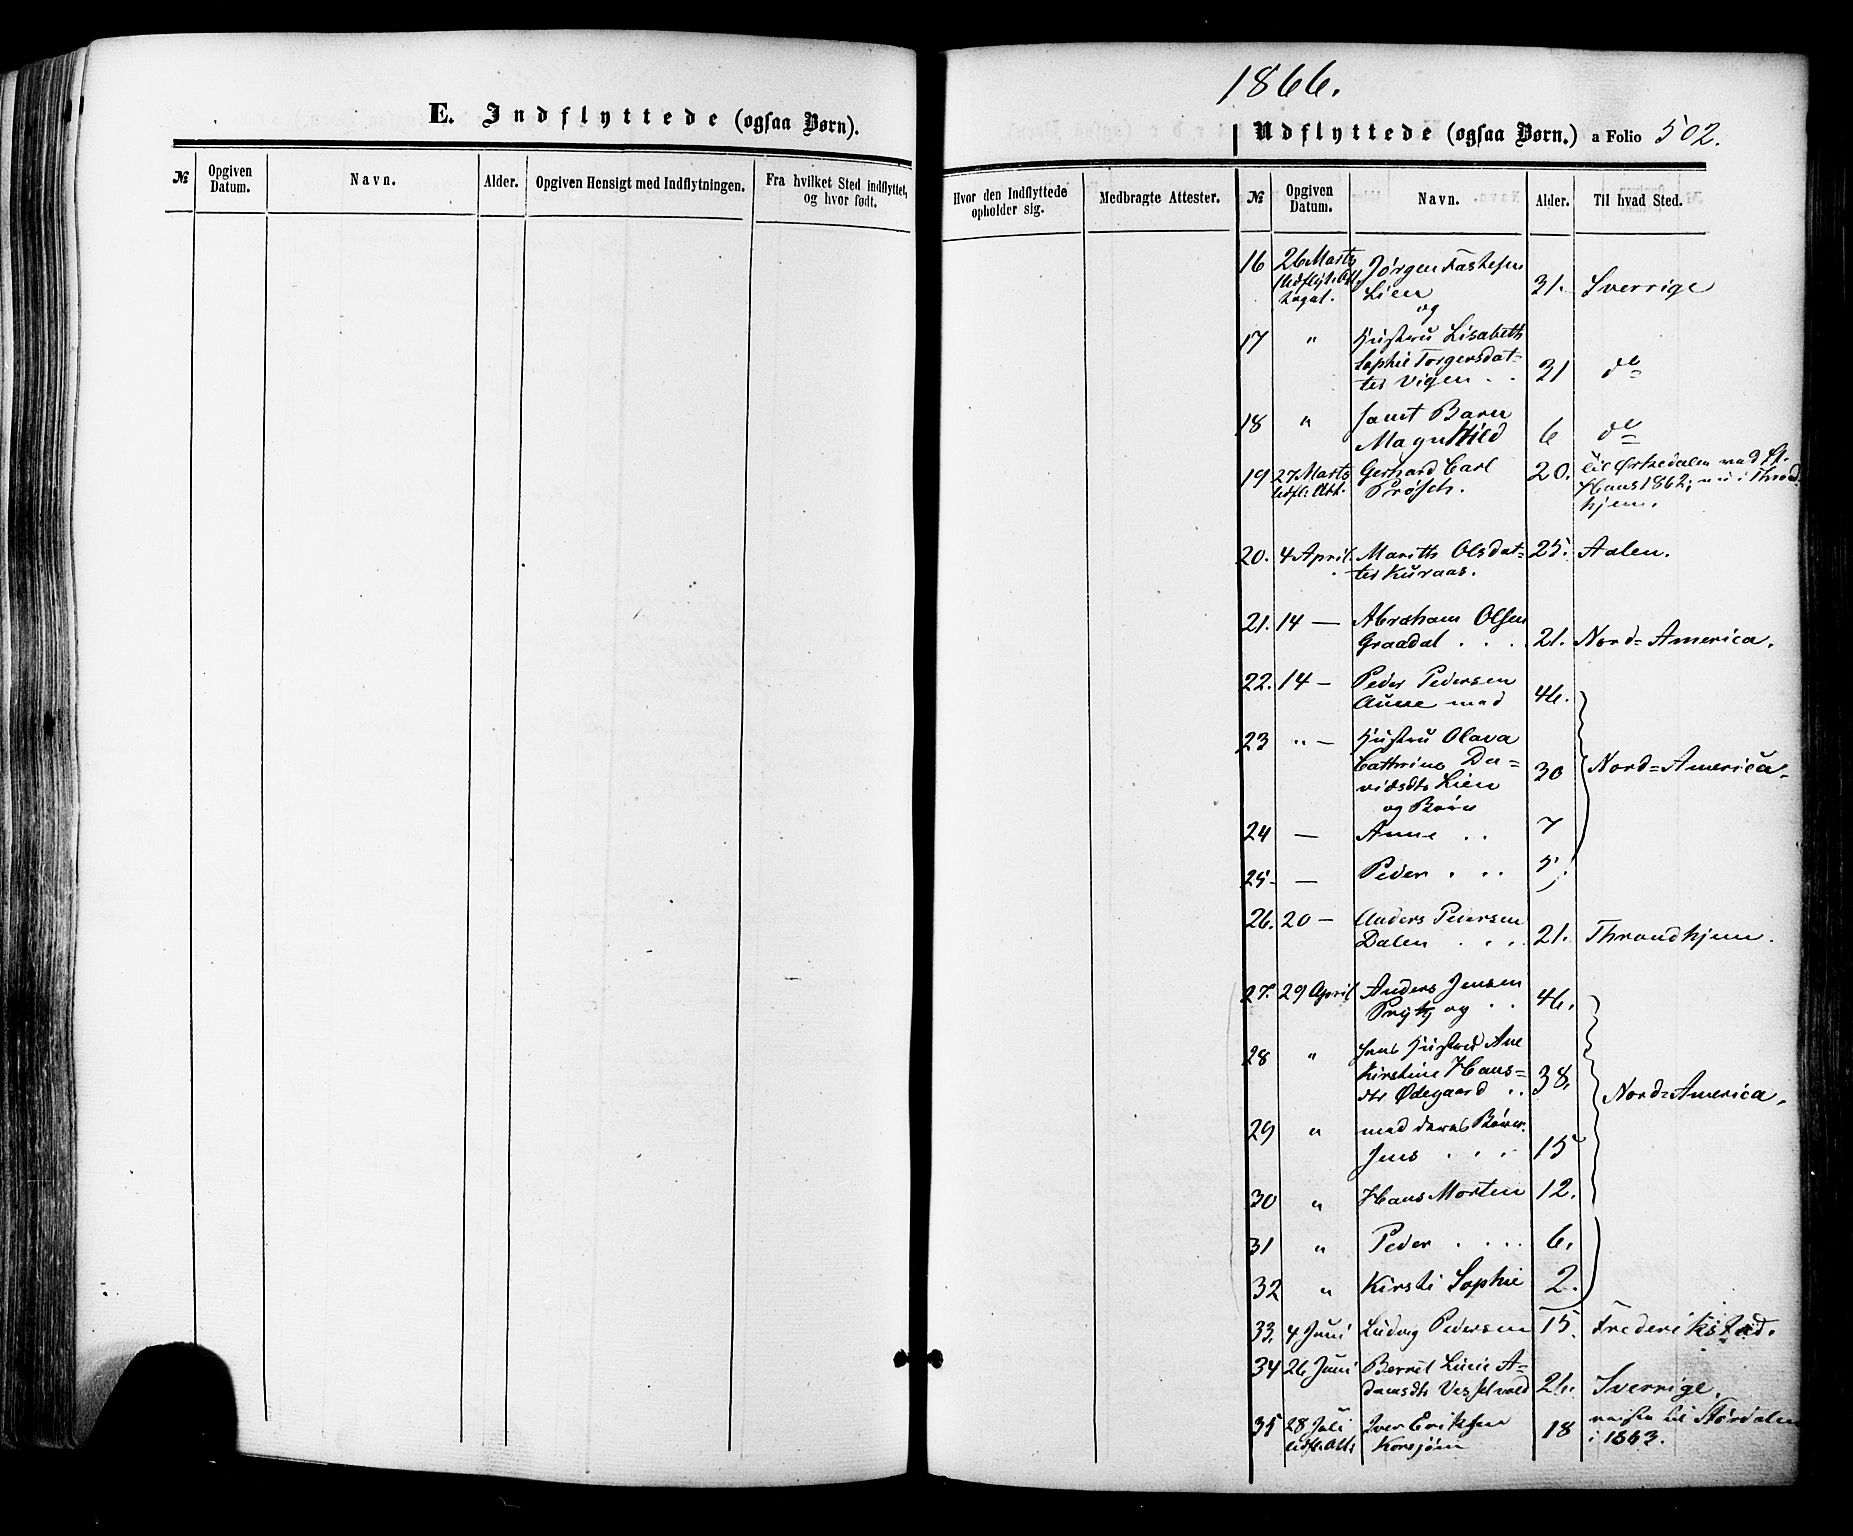 E. Indflyttede (ogsaa Børn).
№ Opgiven Datum. Navn. Alder. Opgiven Hensigt med Indflytningen. Fra hvilket Sted indflyttet, og hvor født.
1866.
Udflyttede (ogsaa Børn.) a Folio 502.
Hvor den Indflyttede opholder sig. Medbragte Attester. № Opgiven Datum. Navn. Alder. Til hvad Sted.
16 26 Marts Jørgen
Lien 31. Sverrige
og
17 " Hustru Lisabeth
Sophie Torgersdat=
ter Vigen . . 31 do
18 " samt Barn
Magnhild 6 do
19 27 Marts Gerhard Carl 20. til Ørkedalen ved St.
Udfl. Att. Prøsch. Hans 1862; nu i Thrond
hjem.
20. 4 April. Marith Olsdat= 25. Aalen.
ter Kuraas.
21. 14 — Abraham Olsen
Graadal . . . 21. Nord=America.
22. 14 — Peder Pedersen
Aune med 46.
23 " — Hustru Olava
Cathrine Da= 30 Nord=America.
vidsdtr Lien
og Børn
24 — Anne . . 7
25 — Peder . . . 5.
26. 20 — Anders Petersen
Dalen . . . 21. Throndhjem.
27. 29 April Anders Jensen
Prytz og . . 46.
28 " Hans Hustru Ane
Kirstine Hans=
dtr Ødegaard . . 38. Nord=America.
29 " med deres Børn:
Jens . . . . 15
30 " Hans Morten 12.
31 " Peder . . . . 6.
32 " Kirsti Sophie 2.
33. 4 Juni Ludvig Pedersen 15. Frederikstad.
34 26 Juni Berret Lucie A=
damsdtr 26. Sverrige.
35 28 Juli Iver Eriksen 18 reiste til Størdalen
Udfl. Att. Korsjøen i 1863.